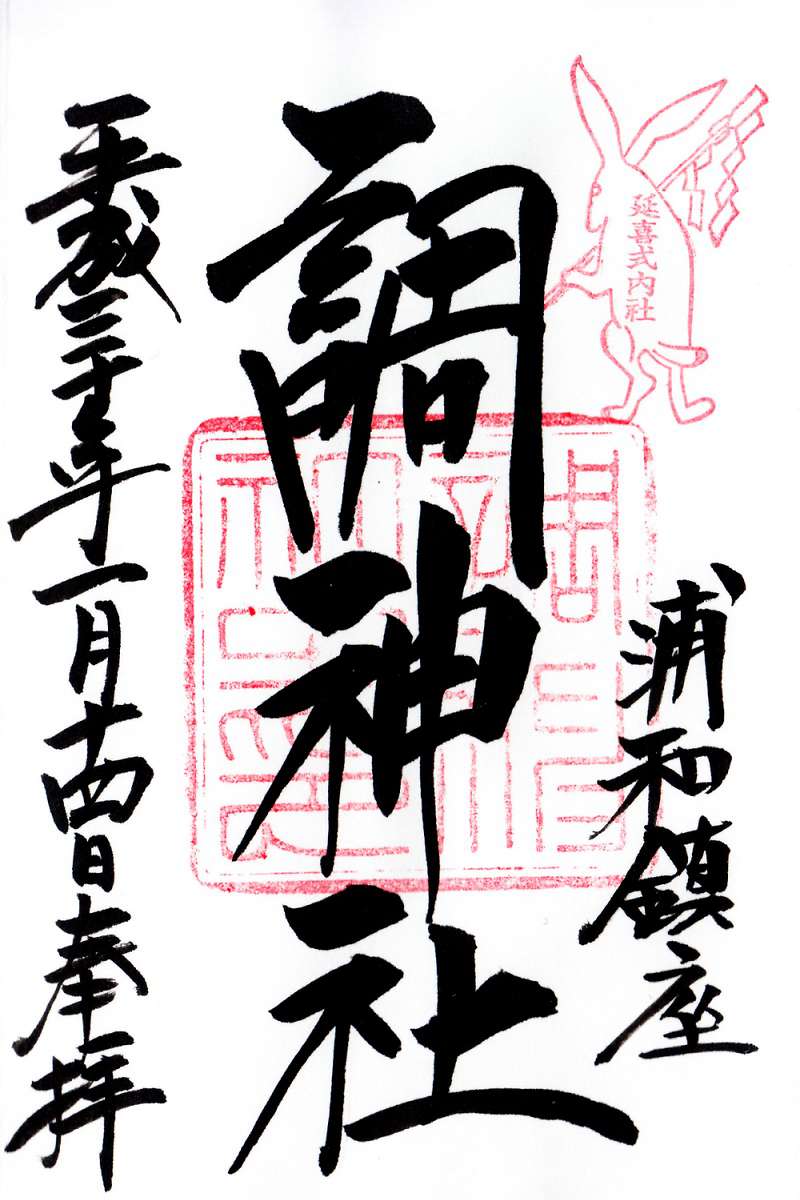 延喜式内社
浦和鎮座
調神社
平成三十年一月十四日奉拝